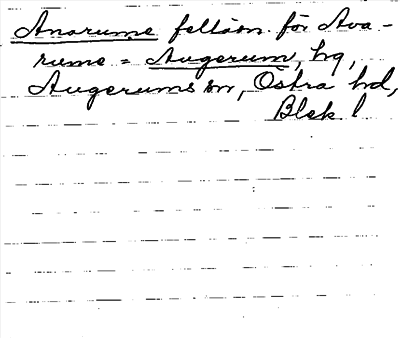 Anarume felläsn. för Ava-
rume = Augerum, hg,
Augerums sn, Östra hd,
Blek l